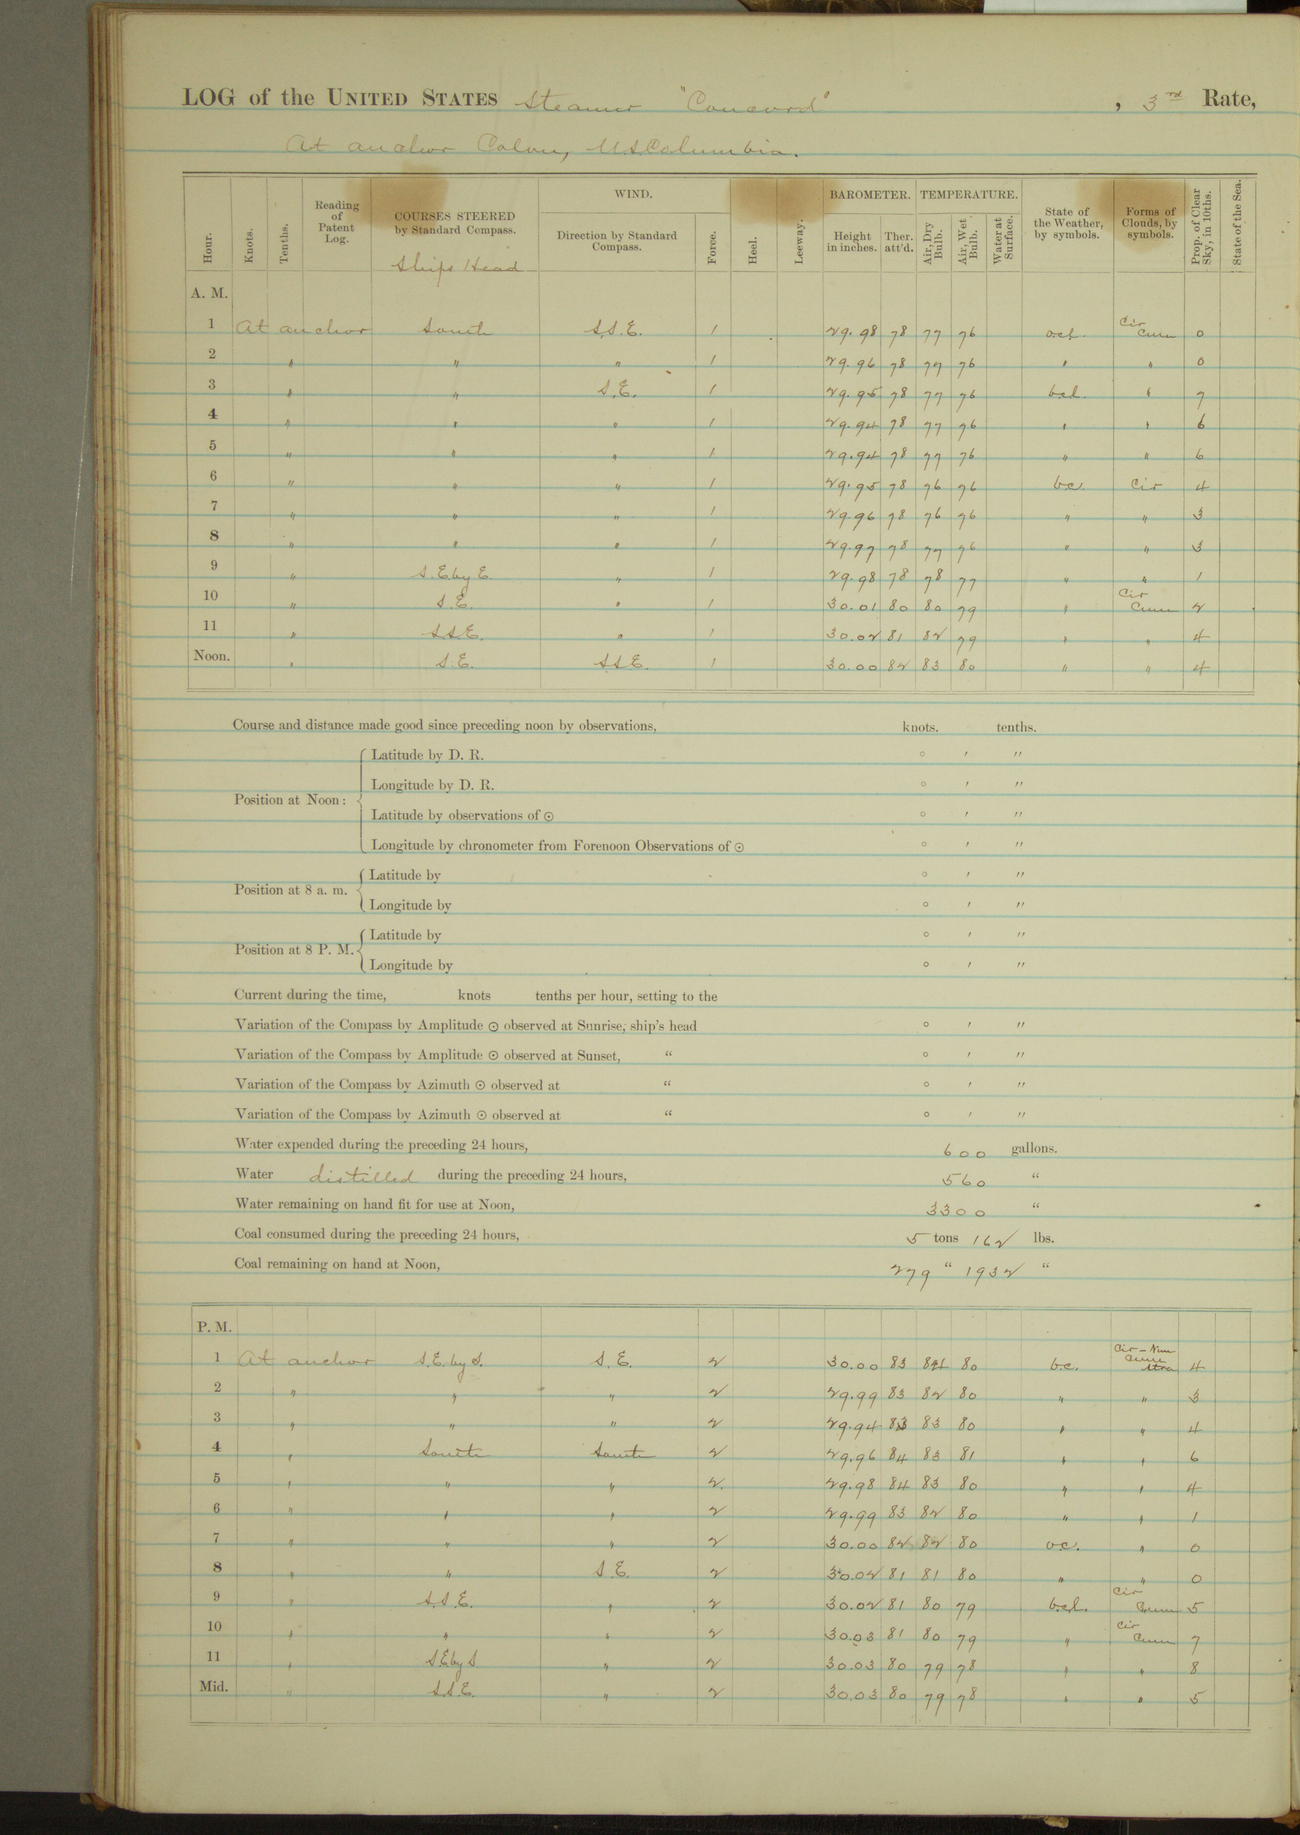 LOG of the UNITED STATES Steamer "Concord", 3rd Rate,
At anchor Colon, U S Columbia.
Hour. Knots. Tenths. Reading of Patent Log. COURSES STEERED by Standard Compass. WIND. Direction by Standard Compass. Force. Heel. Leeway. BAROMETER. Height in inches. Ther. att'd. TEMPERATURE. Air, Dry Bulb. Air, Wet Bulb. Water at Surface. State of the Weather, by symbols. Forms of Clouds, by symbols. Prop. of Clear Sky, in 10ths. State of the Sea.
Ships Head
A. M.
1 At anchor South S.S.E. 1 29.98 78 77 76 ocl. Cir Cum 0
2 " " " 1 29.96 78 77 76 " " 0
3 " " S.E. 1 29.95 78 77 76 bcl. " 7
4 " " " 1 29.94 78 77 76 " " 6
5 " " " 1 29.94 78 77 76 " " 6
6 " " " 1 29.95 78 76 76 bc. Cir 4
7 " " " 1 29.96 78 76 76 " " 3
8 " " " 1 29.97 78 77 76 " " 3
9 " S.E. by E. " 1 29.98 78 78 77 " " 1
10 " S.E. " 1 30.01 80 80 79 " Cir Cum 2
11 " S.S.E. " 1 30.02 81 82 79 " " 4
Noon. " S.E. S.S.E. 1 30.00 82 83 80 " " 4
Course and distance made good since preceding noon by observations, knots. tenths.
Position at Noon: Latitude by D. R. ° ′ ″
Longitude by D. R. ° ′ ″
Latitude by observations of ☉ ° ′ ″
Longitude by chronometer from Forenoon Observations of ☉ ° ′ ″
Position at 8 a. m. Latitude by ° ′ ″
Longitude by ° ′ ″
Position at 8 P. M. Latitude by ° ′ ″
Longitude by ° ′ ″
Current during the time, knots tenths per hour, setting to the
Variation of the Compass by Amplitude ☉ observed at Sunrise, ship's head ° ′ ″
Variation of the Compass by Amplitude ☉ observed at Sunset, " ° ′ ″
Variation of the Compass by Azimuth ☉ observed at " ° ′ ″
Variation of the Compass by Azimuth ☉ observed at " ° ′ ″
Water expended during the preceding 24 hours, 600 gallons.
Water distilled during the preceding 24 hours, 560 "
Water remaining on hand fit for use at Noon, 3300 "
Coal consumed during the preceding 24 hours, 5 tons 162 lbs.
Coal remaining on hand at Noon, 279 " 1932 "
P. M.
1 At anchor S.E. by S. S.E. 2 30.00 83 80 bc. Cir-Nim Cum Stra 4
2 " " " 2 29.99 83 82 80 " " 3
3 " " " 2 29.94 83 83 80 " " 4
4 " South South 2 29.96 84 83 81 " " 6
5 " " " 2. 29.98 84 83 80 " " 4
6 " " " 2 29.99 83 82 80 " " 1
7 " " " 2 30.00 82 82 80 oc. " 0
8 " " S.E. 2 30.02 81 81 80 " " 0
9 " S.S.E. " 2 30.02 81 80 79 bcl. Cir Cum 5
10 " " " 2 30.03 81 80 79 " Cir Cum 7
11 " S.E by S. " 2 30.03 80 79 78 " " 8
Mid. " S.S.E. " 2 30.03 80 79 78 " " 5